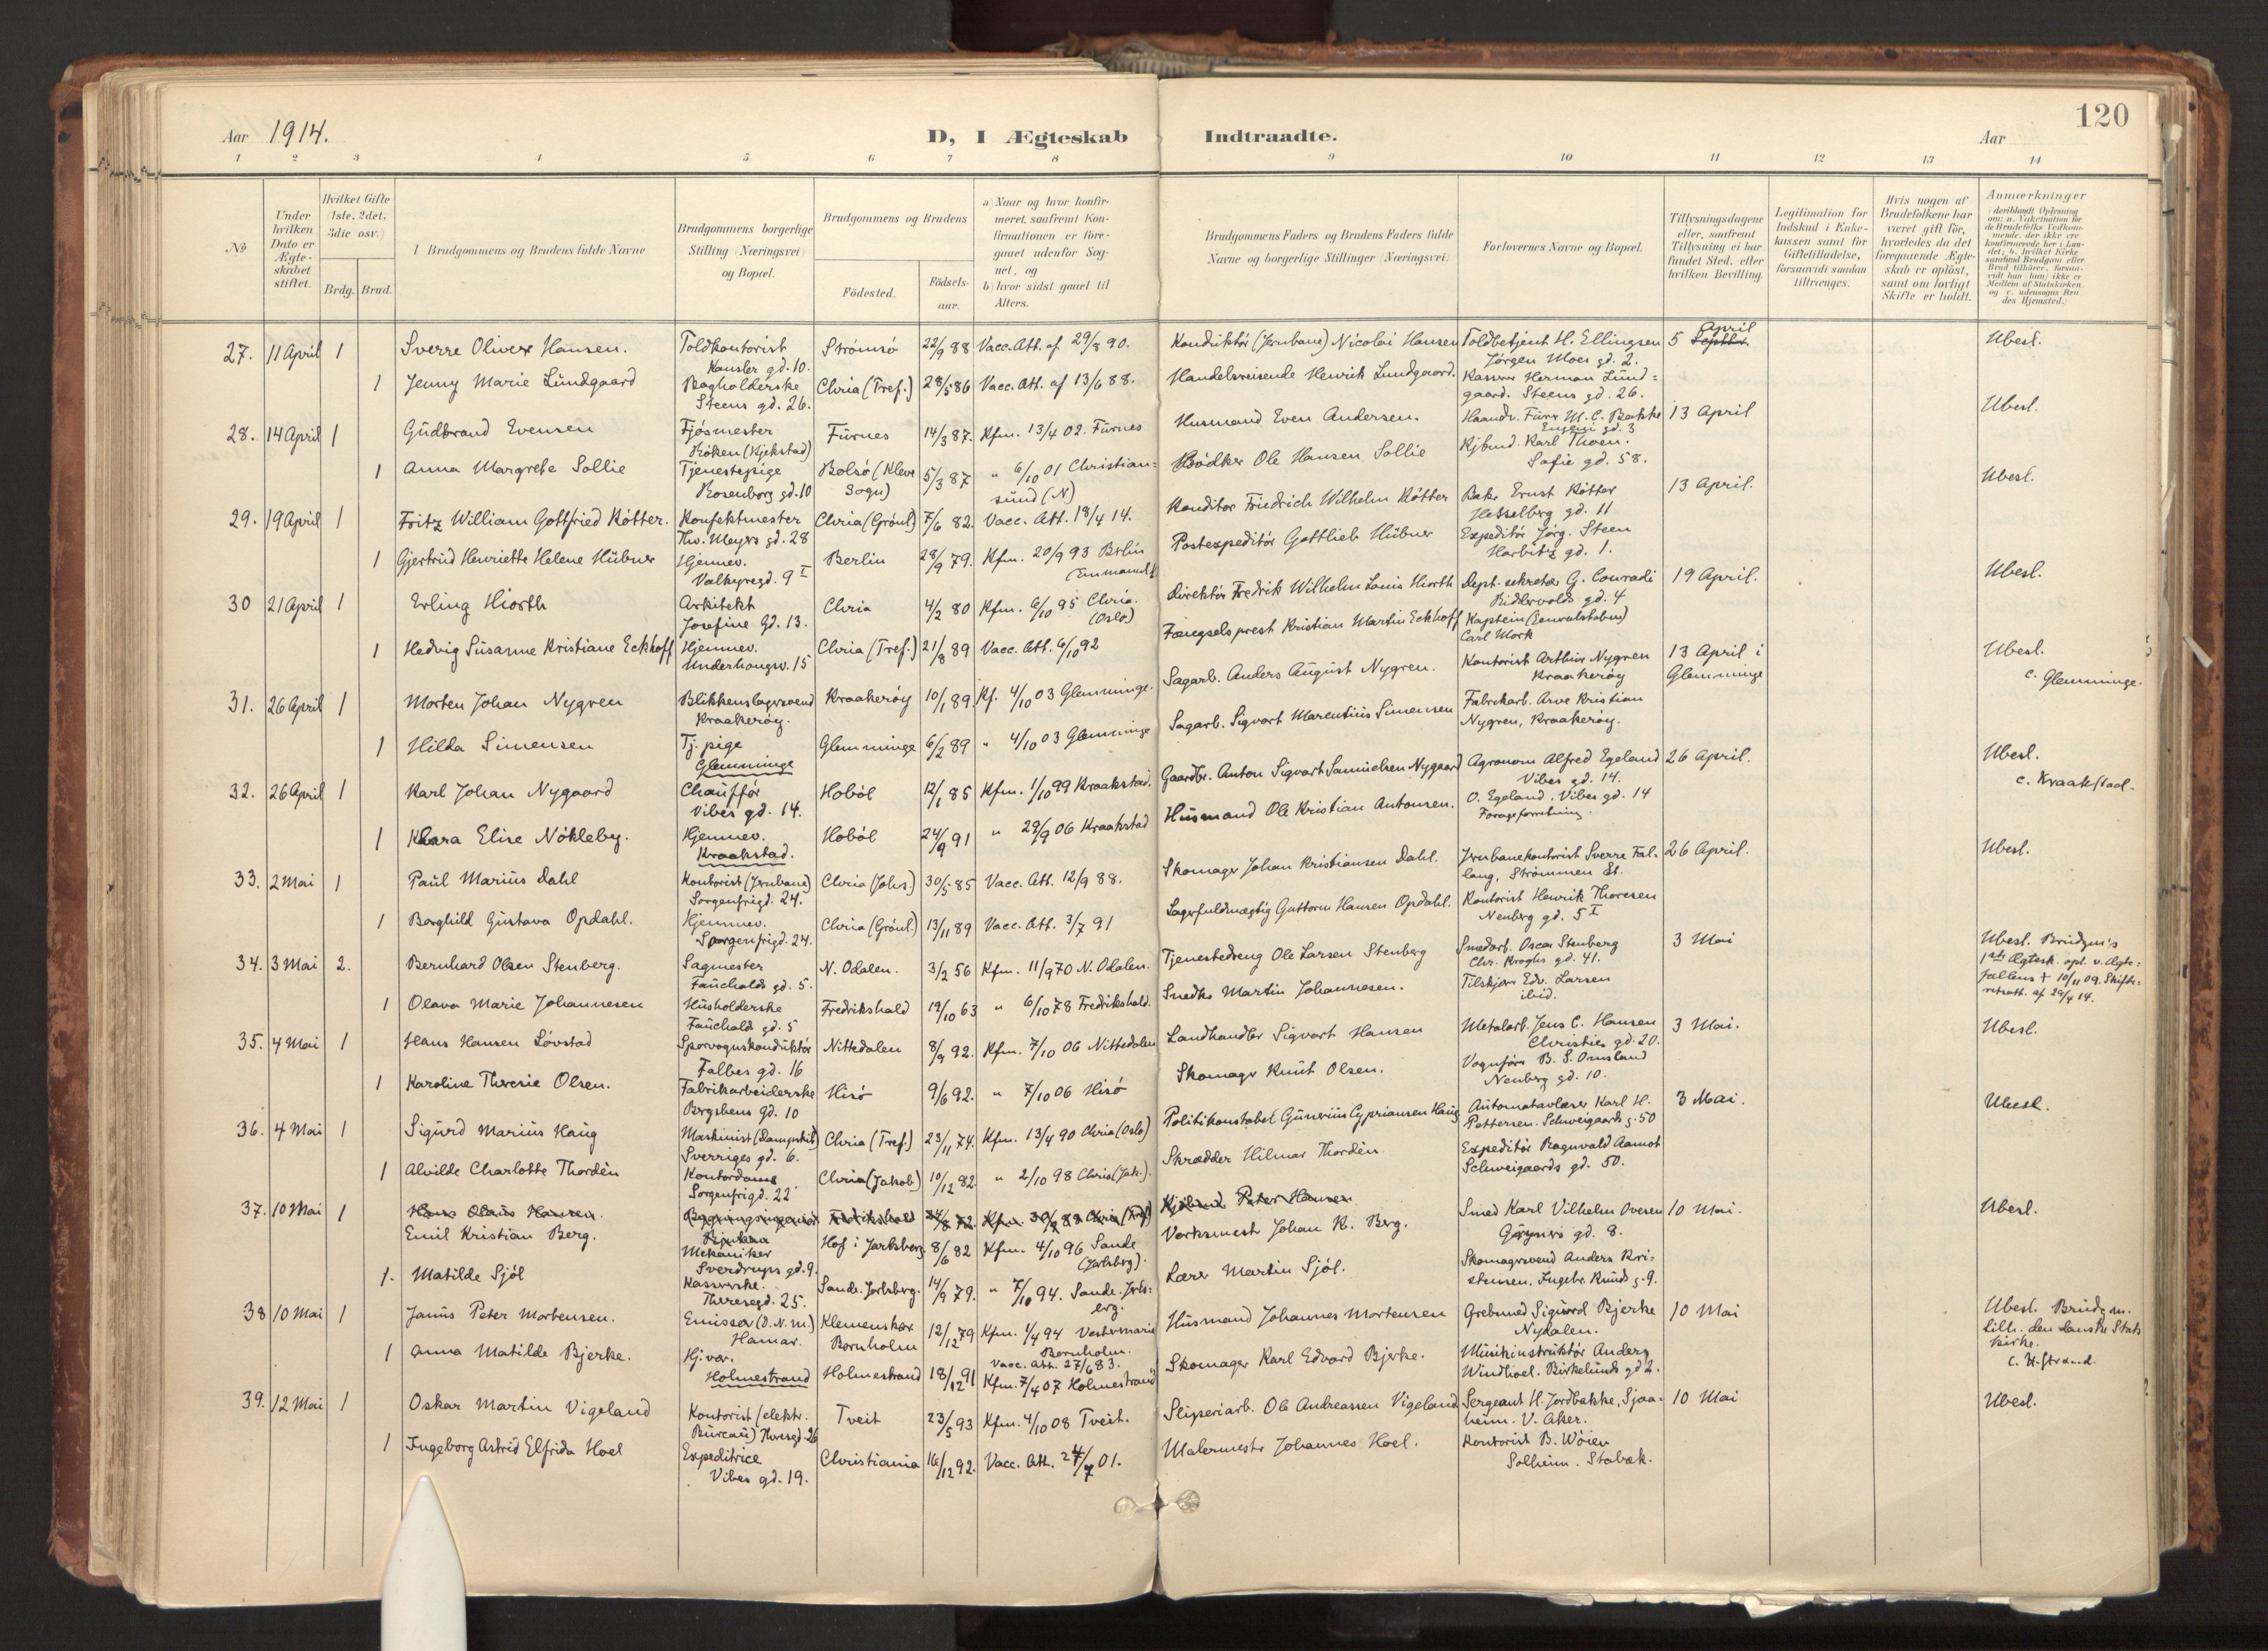 120
Aar 1914. D, I Ægteskab Indtraadte. Aar
1 2 3 4 5 6 7 8 9 10 11 12 13 14
№
Under hvilken Dato er Ægte-skabet stiftet.
Hvilket Gifte (1ste, 2det, 3die osv.)
Brdg. Brud.
I Brudgommens og Brudens fulde Navne
Brudgommens borgerlige Stilling (Næringsvei) og Bopæl.
Brudgommens og Brudens
Födested. Födsels-aar.
a) Naar og hvor konfirmeret, saafremt Konfirmationen er foregaaet udenfor Sognet, og
b) hvor sidst gaaet til Alters.
Brudgommens Faders og Brudens Faders fulde Navne og borgerlige Stillinger (Næringsvei)
Forlovernes Navne og Bopæl.
Tillysningsdagene eller, saafremt Tillysning ei har fundet Sted, efter hvilken Bevilling.
Legitimation for Indskud i Enkekassen samt for Giftetilladelse, forsaavidt saadan tiltrænges.
Hvis nogen af Brudefolkene har været gift för, hvorledes da det foregaaende Ægteskab er oplöst, samt om lovligt Skifte er holdt.
Anmærkninger (deriblandt Oplysning om: a. Vakcination for de Brudefolks Vedkommende, der ikke ere konfirmerede her i Landet; b. hvilket Kirkesamfund Brudgom eller Brud tilhörer, forsaavidt han (hun) ikke er Medlem af Statskirken, og c. udensogns Brudes Hjemsted.)
27. 11 April 1 Sverre Oliver Hansen. Toldkontorist Kansler gd. 10. Strömsö 22/9 88 Vacc. Att. af 29/8 90. Konduktör (Jernbane) Nicolai Hansen Toldbetjent H. Ellingsen Jörgen Moes gd. 2. 5 Septbr. April Ubesl.
1 Jenny Marie Lundgaard Bagholderske Steens gd. 26. Chria (Tref.) 28/5 86 Vacc. Att. af 13/6 88. Handelsreisende Henrik Lundgaard. Kasserer Herman Lund=gaard. Steens gd. 26.
28. 14 April 1 Gudbrand Evensen Fjösmester Röken (Kjekstad) Furnes 14/3 87. Kfm. 13/4 02. Furnes Husmand Even Andersen. Haandv. Fürer M. C. Bakke Eugeni gd. 3 13 April Ubesl.
1 Anna Margrete Sollie Tjenestepige Rosenborg gd. 10 Bolsö (Kleve Sogn) 5/3 87 " 6/10 01 Christian=sund (N) Bödker Ole Hansen Sollie Kjbmd. Karl Thoen. Sofie gd. 58.
29. 19 April 1 Fritz William Gottfried Kötter. Konfektmester Thv. Meyers gd. 28 Chria (Grönl.) 7/6 82. Vacc. Att. 18/4 14. Konditor Friedrich Wilhelm Kötter Bakr Ernst Kötter Hesselberg gd. 11 13 April. Ubesl.
1 Gjertrud Henriette Helene Hübner Hjemmev. Valkyregd. 9 I Berlin 28/9 79. Kfm. 20/9 93 Berlin (Emmanuels Postexpeditör Gottlieb Hübner Expeditör Jörg. Steen Harbitz gd. 1.
30 21 April 1 Erling Hiorth Arkitekt Josefine Gd. 13. Chria 4/2 80 Kfm. 6/10 95 Chria. (Oslo) Direktör Fredrik Wilhelm Louis Hiorth Dept. sekretær G. Conradi Riddervolds gd. 4 19 April. Ubesl.
1 Hedvig Susanne Kristiane Eckhoff Hjemmev. Underhaugsv. 15 Chria (Tref.) 21/8 89 Vacc. Att. 6/10 92 Fængselsprest Kristian Martin Eckhoff Kaptein (Generalstaben) Carl Mork
31. 26 April 1 Morten Johan Nygren Blikkenslagersvend Kraakeröy. Kraakeröy 10/1 89. Kf. 4/10 03 Glemminge. Sagarb. Anders August Nygren. Kontorist Arthur Nygren Kraakeröy 13 April i Glemminge Ubesl. c. Glemminge.
1 Hilda Simensen Tj. pige Glemminge Glemminge 6/2 89 " 4/10 03 Glemminge Sagarb. Sigvart Marentius Simensen Fabrikarb. Arve Kristian Nygren, Kraakeröy.
32. 26 April 1 Karl Johan Nygaard Chaufför Vibes gd. 14. Hoböl 12/1 85 Kfm. 1/10 99 Kraakstad. Gaardbr. Anton Sigvart Samuelsen Nygaard Agronom Alfred Egeland Vibes gd. 14. 26 April. Ubesl. c. Kraakstad.
1 Klara Elise Nökleby. Hjemmev. Kraakstad. Hoböl 24/9 91 " 29/9 06 Kraakstad Husmand Ole Kristian Antonsen. O. Egeland. Vibes gd. 14 Forageforretning.
33. 2 Mai 1 Paul Marius Dahl Kontorist (Jernbane) Sorgenfrigd. 24. Chria (Johs.) 30/5 85 Vacc. Att. 12/9 88. Skomager Johan Kristiansen Dahl. Jernbanekontorist Sverre Fal=lang, Strömmen St. 26 April. Ubesl.
1 Borghild Gustava Opdahl. Hjemmev. Sorgenfrigd. 24. Chria (Grönl.) 13/11 89 Vacc. Att. 3/7 91 Lagerfuldmægtig Guttorm Hansen Opdahl. Kontorist Henrik Thoresen Neuberg gd. 5 I
34. 3 Mai 2. Bernhard Olsen Stenberg. Sagmester Fauchalds gd. 5. N. Odalen. 3/2 56 Kfm. 11/9 70 N. Odalen. Tjenestedreng Ole Larsen Stenberg Smedarb. Oscar Stenberg Chr. Kroghs gd. 41. 3 Mai Ubesl. Brudgm's 1ste Ægtesk. opl. v. Ægte=fællens † 10/11 09. Skifte=rettsatt. af 29/4 14.
1 Olava Marie Johannesen Husholderske Fauchalds gd. 5 Fredrikshald 19/10 63 " 6/10 78 Fredrikshald. Snedker Martin Johannesen. Tilskjærer Edv. Larsen ibid.
35. 4 Mai 1 Hans Hansen Lövstad Sporvognskonduktör Falbes gd. 16 Nittedalen 8/9 92. Kfm. 7/10 06 Nittedalen Landhandler Sigvart Hansen Metalarb. Jens C. Hansen Christies gd. 20. 3 Mai. Ubesl.
1 Karoline Theresie Olsen. Fabrikarbeiderske Bergsliens Gd. 10 Hisö 9/6 92. " 7/10 06 Hisö Skomager Knut Olsen. Vognfører B. S. Omsland Neuberg gd. 10.
36. 4 Mai 1 Sigurd Marius Haug Maskinist (Dampskib) Sverriges gd. 6. Chria (Tref.) 23/11 74. Kfm. 13/4 90 Chria (Oslo) Politikonstabel Gunerius Cypriansen Haug Automatavlæser Karl H. Pettersen. Schweigaards g. 50 3 Mai. Ubesl.
1 Alvilde Charlotte Thordén Kontordame Sorgenfrigd. 22 Chria (Jakob) 10/12 82. " 2/10 98 Chria (Jak.). Skrædder Hilmar Thordén. Expeditör Ragnvald Aamot Schweigaards gd. 50.
37. 10 Mai 1 Hans Olaus Hansen. Bygningsingeniör Rjukan Fredrikshald 24/8 72. Kfm. 30/9 88 Chria (Tref) Kjöbmd Peter Hansen
Emil Kristian Berg. Mekaniker Sverdrups gd. 9. Hof i Jarlsberg 8/6 82 Kfm. 4/10 96 Sande (Jarlsberg). Verksmest. Johan K. Berg. Smed Karl Vilhelm Oversen Grÿners gd. 8. 10 Mai. Ubesl.
1. Matilde Sjöl Kassererske. Theresegd. 25. Sande. Jarlsberg. 14/9 79. " 7/10 94. Sande. Jarls=berg. Lærer Martin Sjöl. Skomagersvend Anders Kri=stensen, Ingebr. Knuds g. 9.
38 10 Mai 1 Janus Peter Mortensen. Emissær (D. N. M.) Hamar. Klemensker Bornholm 12/12 79 Kfm. 1/4 94 Vestermarie Bornholm. Vacc. Att. 27/6 83. Husmand Johannes Mortensen Grebsmed Sigurd Bjerke Nydalen. 10 Mai Ubesl. Brudgm. tilh. den danske Stats kirke. c. H.strand.
1 Anna Matilde Bjerke. Hj.vær. Holmestrand Holmestrand 18/12 91 Kfm. 7/4 07 Holmestrand Skomager Karl Edvard Bjerke. Musikinstruktör Anders Windhoel. Birkelunds gd 2.
39. 12 Mai 1 Oskar Martin Vigeland Kontorist (elektr. Bureau) Theresegd. 26 Tveit 23/5 93 Kfm. 4/10 08 Tveit. Sliperiarb. Ole Andreassen Vigeland Sergeant H. Jordbakke, Sjaa=heim. V. Aker. 10 Mai Ubesl.
1 Ingeborg Astrid Elfrida Hoel Expeditrice Vibes gd. 19. Christiania 16/12 92. Vacc. Att. 24/7 01. Malermester Johannes Hoel. Kontorist B. Wöien Solheim. Stabæk.